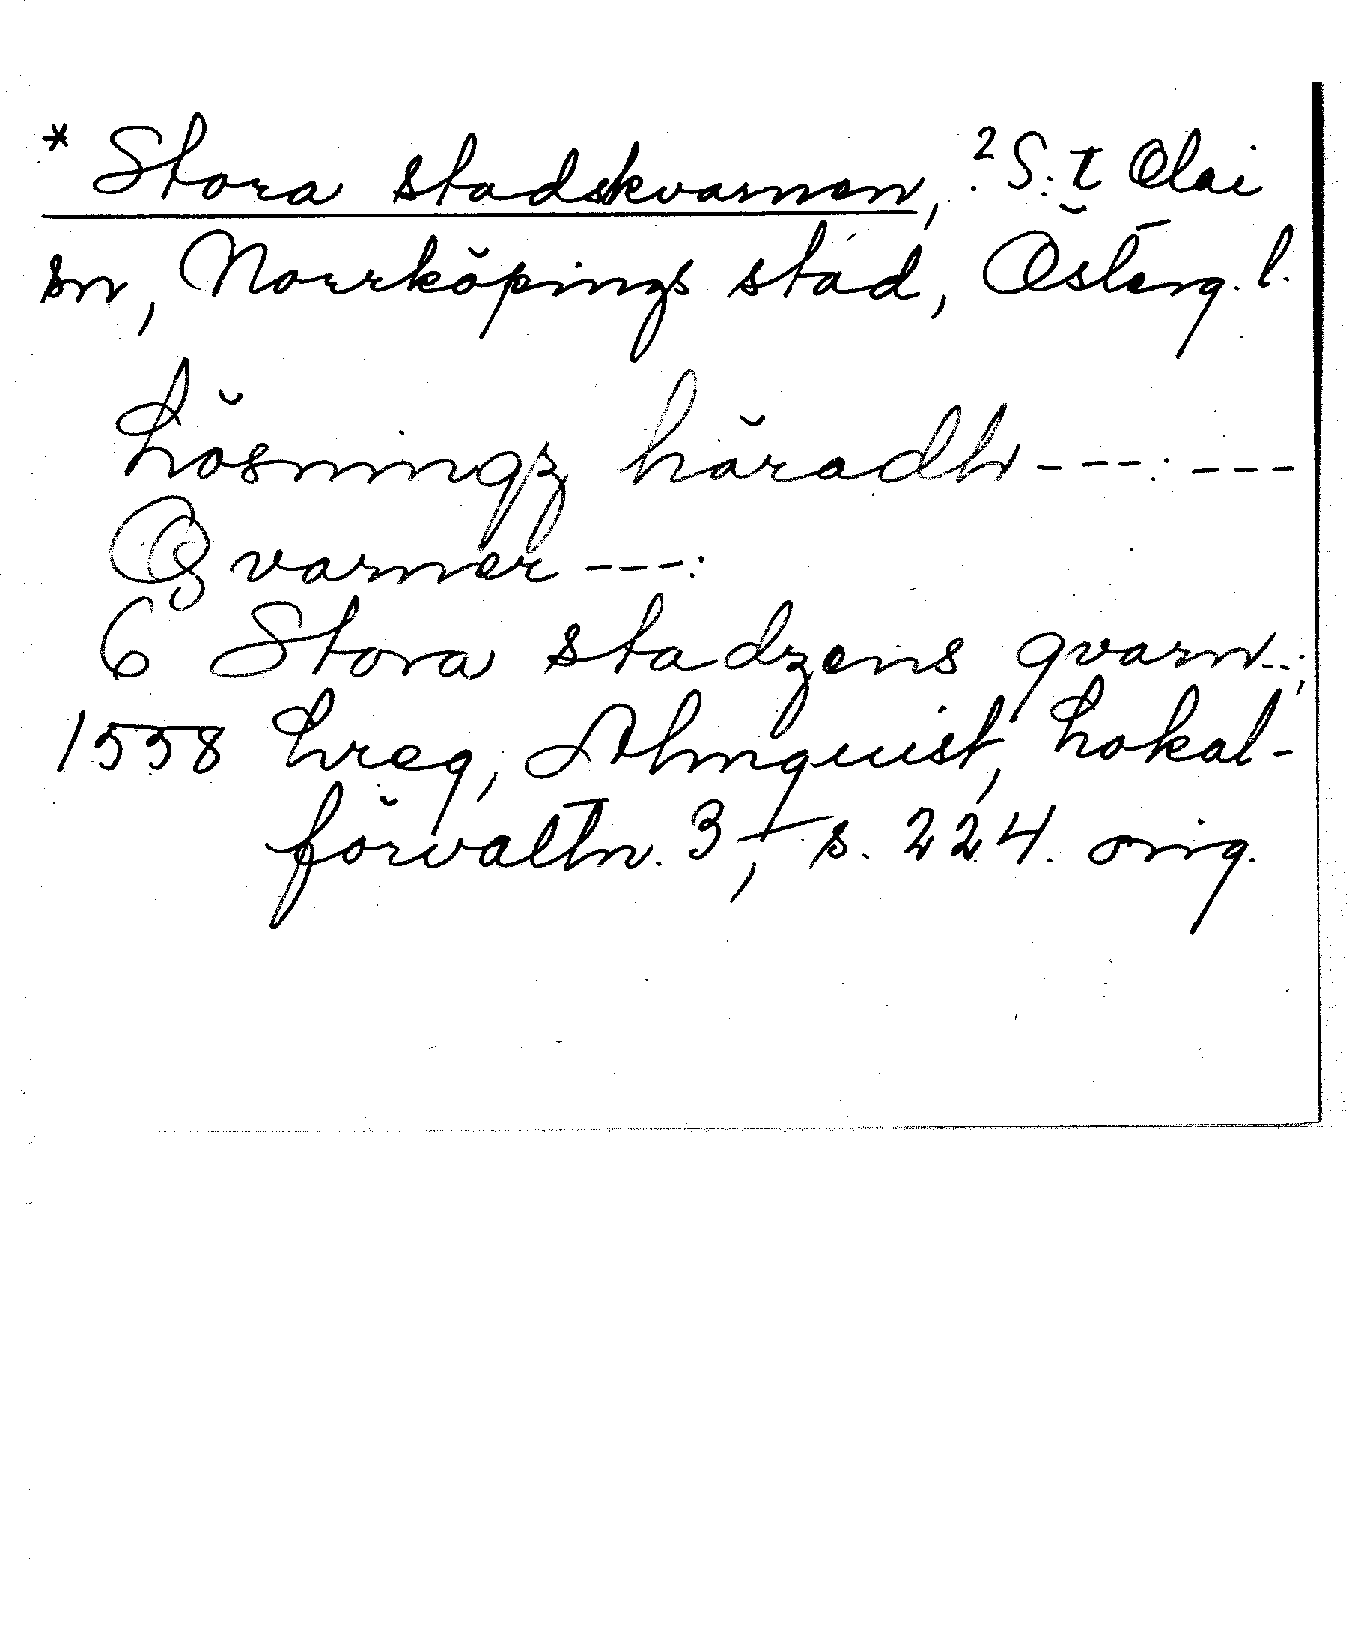 * Stora stadskvarnen, ? S:t Olai
sn, Norrköpings stad, Österg. l.
Lösningz häradh ---: ---
Qvarner ---:
6 Stora stadzens qvarn--;
1558 Lreg, Almquist, Lokal-
förvaltn. 3, s. 224. orig.